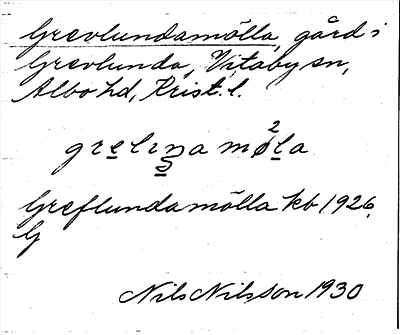 Grevlundamölla, gård i
Grevlunda, Vitaby sn,
Albo hd, Krist. l.
Greflundamölla kb 1926.
G
Nils Nilsson 1930